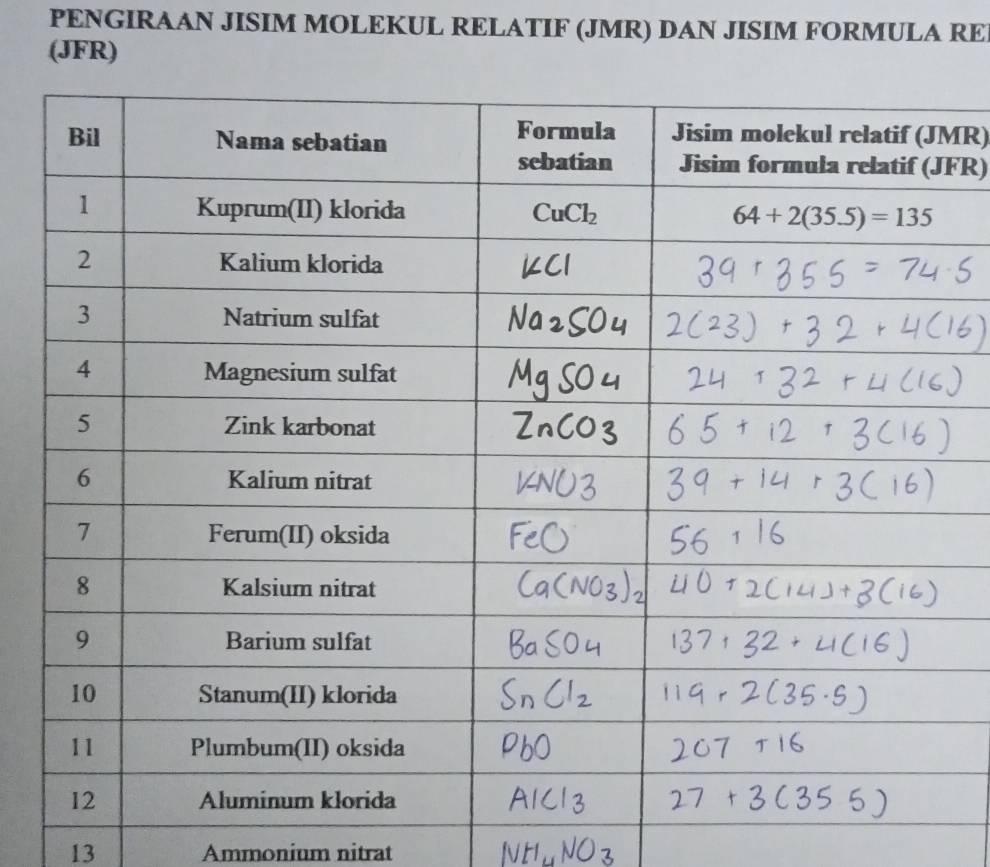 PENGIRAAN JISIM MOLEKUL RELATIF (JMR) DAN JISIM FORMULA RE
(JFR)
Bil Nama sebatian Formula sebatian Jisim molekul relatif (JMR) Jisim formula relatif (JFR)
1 Kuprum(II) klorida CuCl₂ 64 + 2(35.5) = 135
2 Kalium klorida KCl 39 + 35 5 = 74.5
3 Natrium sulfat Na2SO4 2(23) + 32 + 4(16)
4 Magnesium sulfat MgSO4 24 + 32 + 4(16)
5 Zink karbonat ZnCO3 65 + 12 + 3(16)
6 Kalium nitrat KNO3 39 + 14 + 3(16)
7 Ferum(II) oksida FeO 56 + 16
8 Kalsium nitrat Ca(NO3)2 40 + 2(14) + 3(16)
9 Barium sulfat BaSO4 137 + 32 + 4(16)
10 Stanum(II) klorida SnCl2 119 + 2(35.5)
11 Plumbum(II) oksida PbO 207 + 16
12 Aluminum klorida AlCl3 27 + 3(35 5)
13 Ammonium nitrat NH4NO3